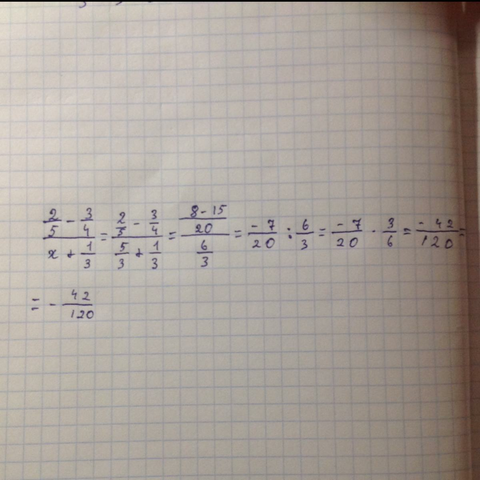 (2/5 - 3/4)/(x + 1/3) = (2/5 - 3/4)/(5/3 + 1/3) = ((8-15)/20)/(6/3) = -7/20 : 6/3 = -7/20 · 3/6 = -42/120 =
= - 42/120